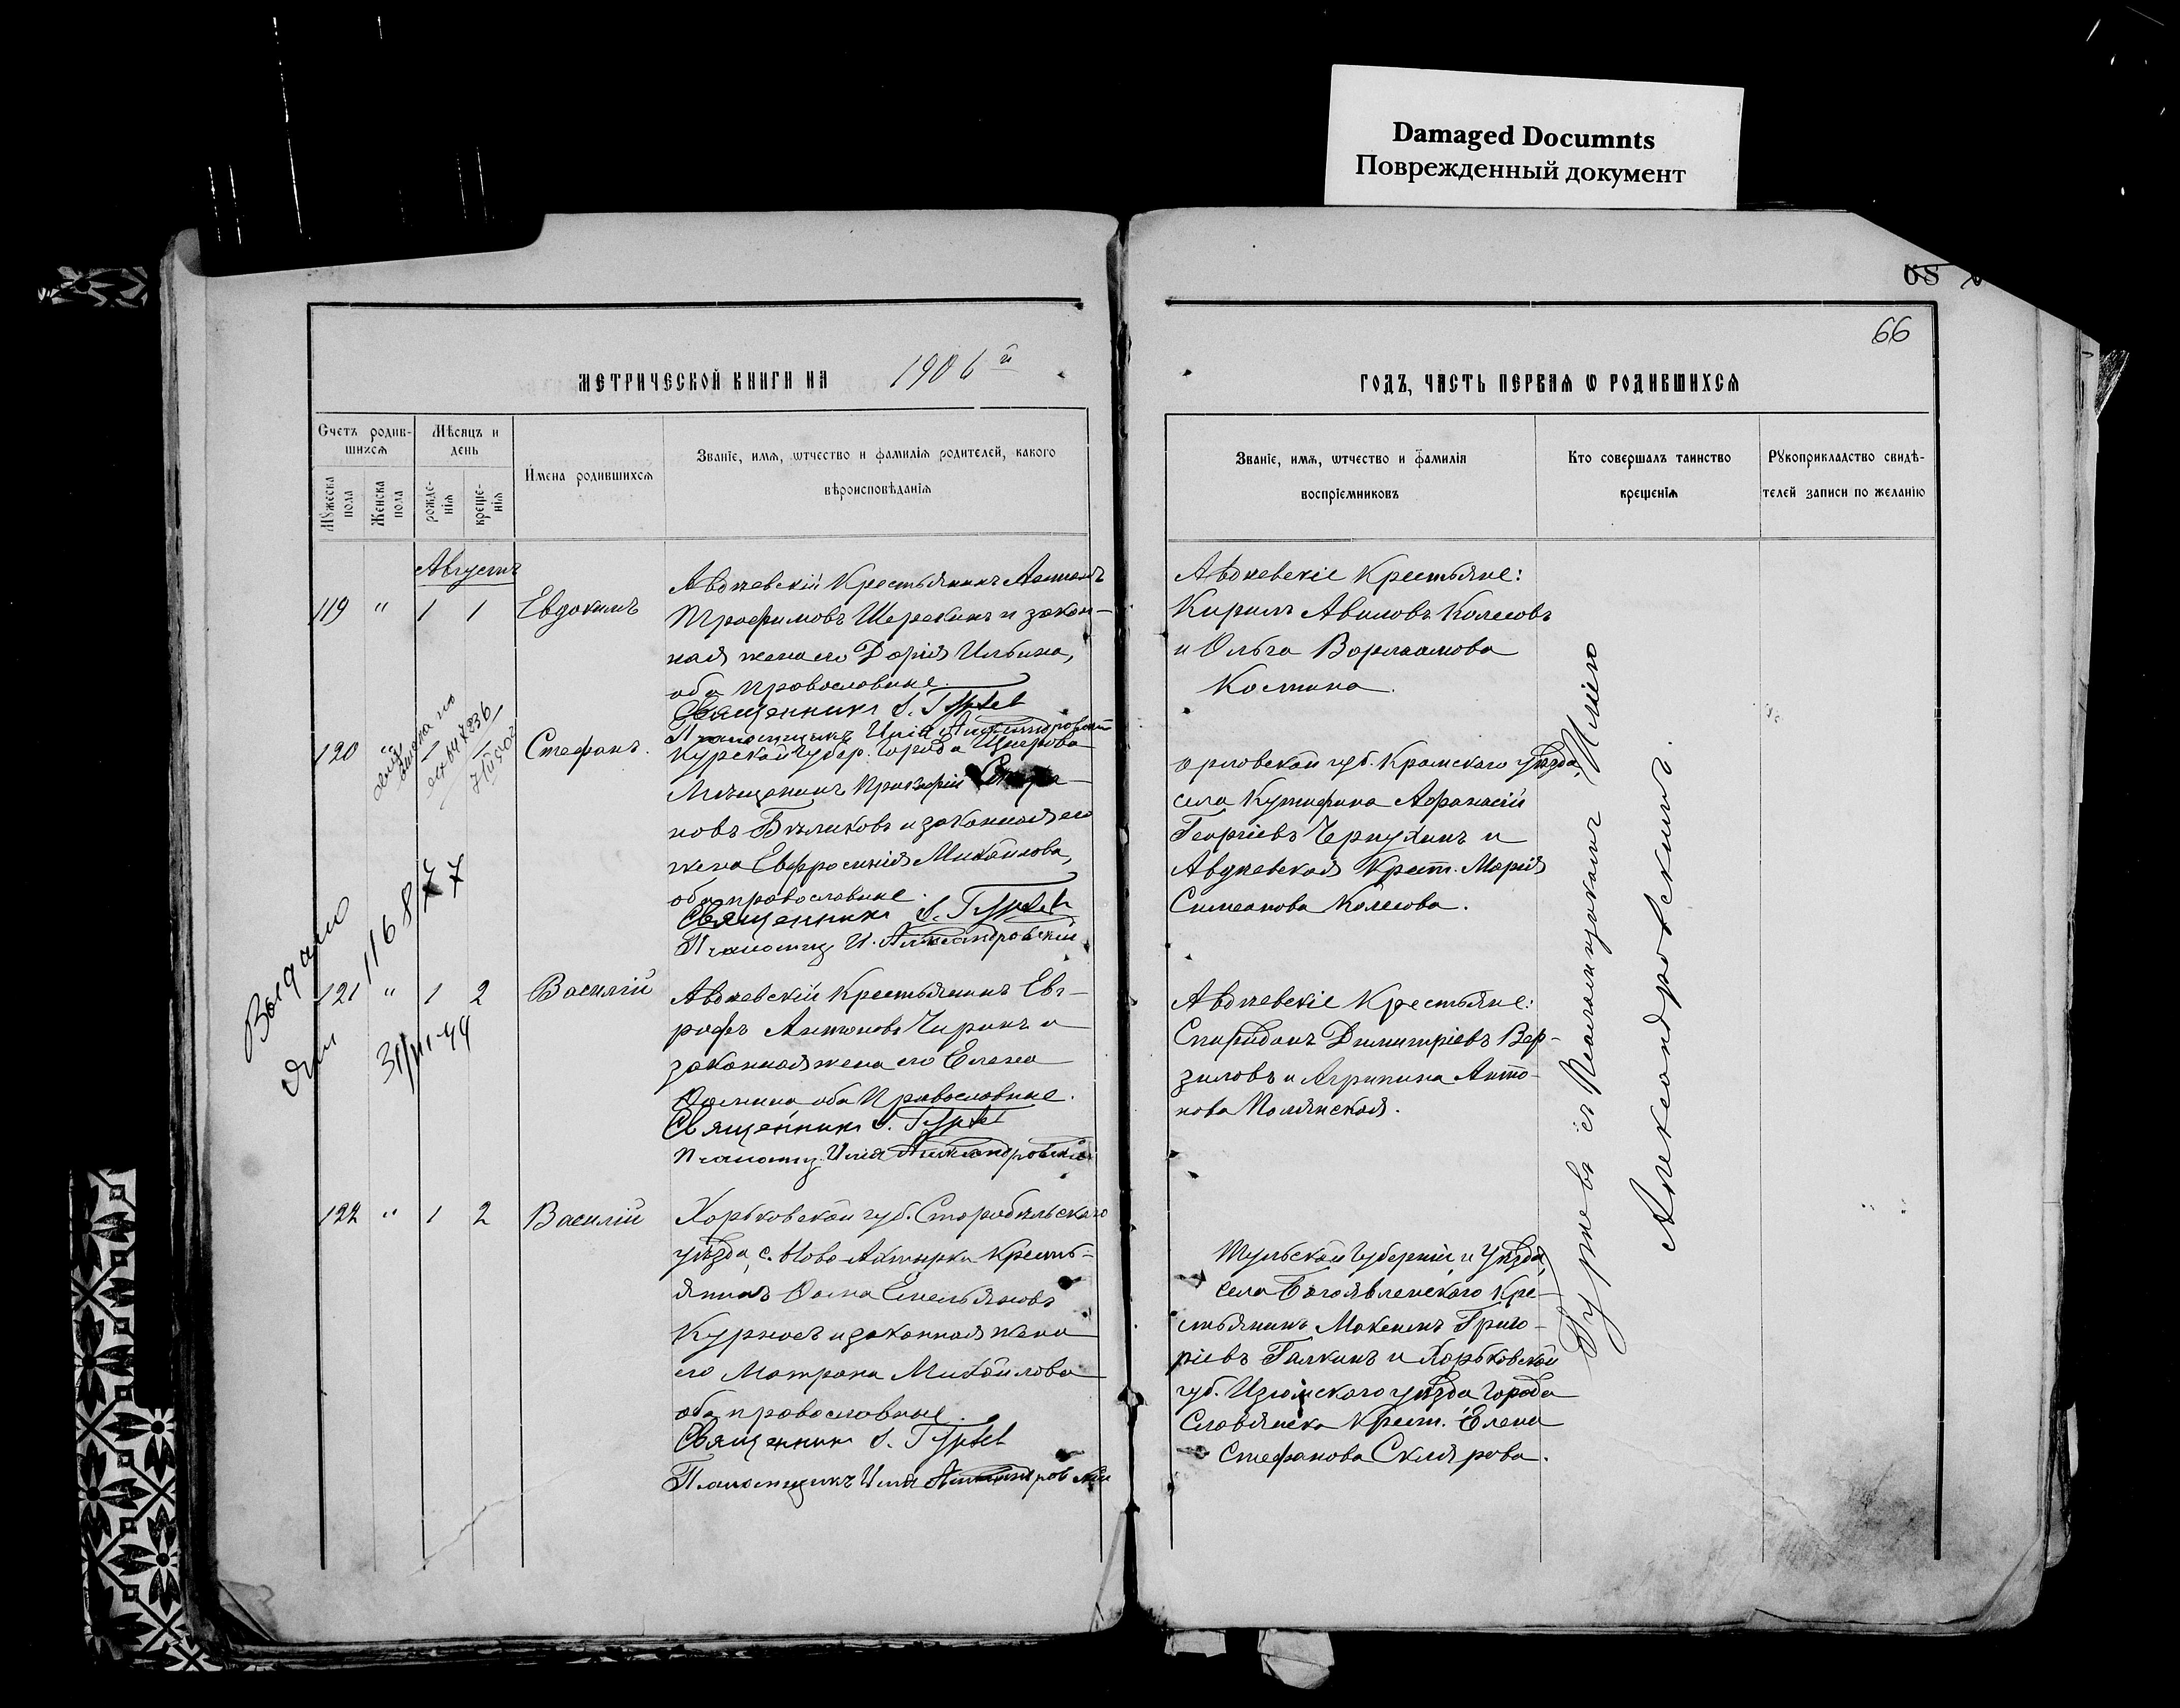 Damaged Documnts
Поврежденный документ
66
МЕТРИЧЕСКОЙ КНИГИ НА 1906 й
ГОДЪ, ЧАСТЬ ПЕРВАЯ Ѡ РОДИВШИХСЯ
Счетъ родив-
шихся
Мѣсяцъ и
день
Мужеска пола
Женска пола
рожде-
нія
креще-
нія
Имена родившихся
Званіе, имя, ѡтчество и фамилія родителей, какого
вѣроисповѣданія
Званіе, имя, ѡтчество и фамилія
воспріемниковъ
Кто совершалъ таинство
крещенія
Рукоприкладство свидѣ-
телей записи по желанію
Августъ
119 " 1 1 Евдокимъ
Авдеевскій Крестьянинъ
Трофимовъ и закон-
ная жена его Дарія Ильина,
оба православные.
Священникъ
Псаломщикъ Илія Александровскій
Авдеевскіе Крестьяне:
Кирилъ Авиловъ Колесовъ
и Ольга Варлаамова
Костина.
120 Стефанъ.
Курской губер. города
Мѣщанинъ
новъ Бѣликовъ и законная его
жена Евфросинія Михайлова,
оба православные.
Священникъ
Псаломщ. И. Александровскій
Орловской губ. Кромского уѣзда,
села Афанасій
Георгіевъ Чернухинъ и
Авдеевская Крест. Марія
Симеонова Колесова.
Выдано
116877
31/III-44
121 " 1 2 Василій
Авдеевскій Крестьянинъ Ев-
графъ Антоновъ Чиринъ и
законная жена его Елена
оба Православные.
Священникъ
Псаломщ. Илія Александровскій
Авдеевскіе Крестьяне:
Спиридонъ Димитріевъ Вер-
зиловъ и Агрипина Анто-
нова Полянская.
122 " 1 2 Василій
Харьковской губ. Старобѣльскаго
уѣзда, с. Ново-Ахтырки Кресть-
янинъ Ѳома Емельяновъ
Курносъ и законная жена
его Матрона Михайлова
оба православные.
Священникъ
Псаломщикъ Илія Александровскій
Тульской губерніи и уѣзда,
села Богоявленскаго Кре-
стьянинъ Максимъ Григо-
ріевъ Галкинъ и Харьковской
губ. Изюмскаго уѣзда города
Славянска Крест. Елена
Стефанова Склярова.
съ Псаломщикомъ Иліею
Александровскимъ.